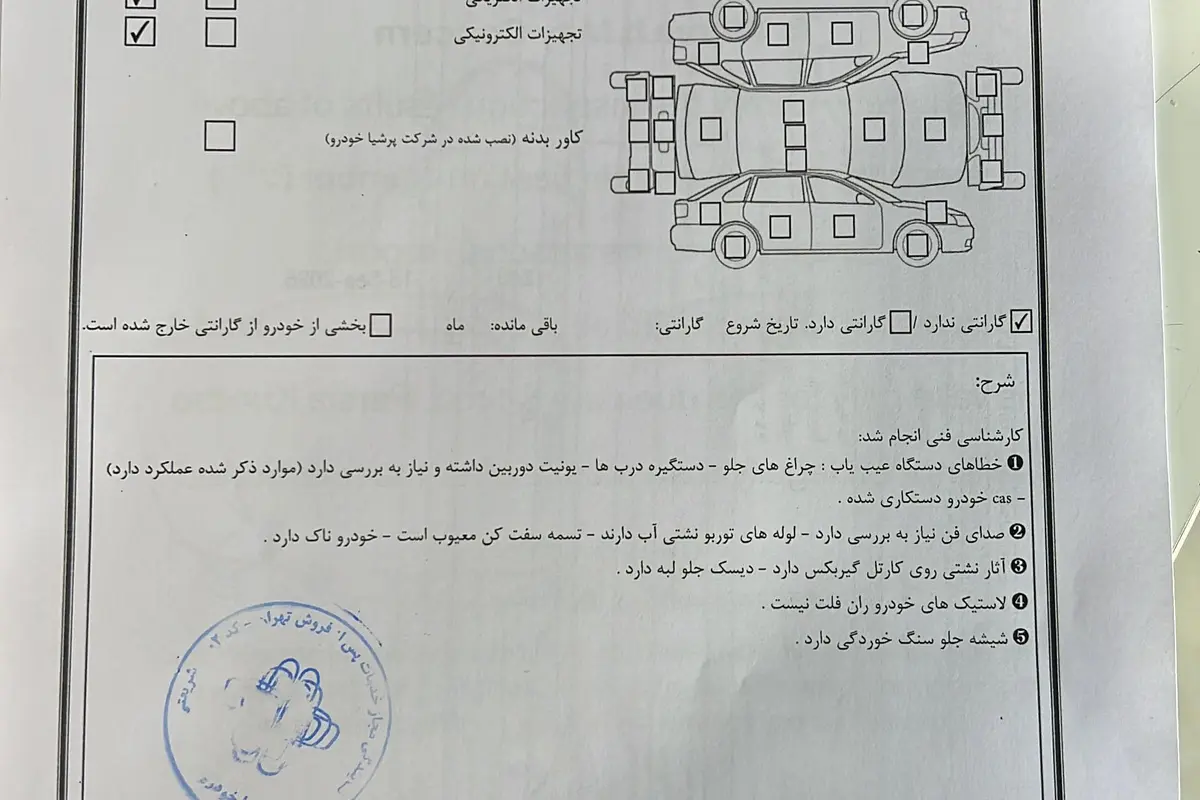 تجهیزات الکتریکی
تجهیزات الکترونیکی
کاور بدنه (نصب شده در شرکت پرشیا خودرو)
گارانتی ندارد / گارانتی دارد. تاریخ شروع گارانتی: باقی مانده: ماه بخشی از خودرو از گارانتی خارج شده است.
شرح:
کارشناسی فنی انجام شد:
❶ خطاهای دستگاه عیب یاب : چراغ های جلو - دستگیره درب ها - یونیت دوربین داشته و نیاز به بررسی دارد (موارد ذکر شده عملکرد دارد)
- cas خودرو دستکاری شده .
❷ صدای فن نیاز به بررسی دارد - لوله های توربو نشتی آب دارند - تسمه سفت کن معیوب است - خودرو ناک دارد .
❸ آثار نشتی روی کارتل گیربکس دارد - دیسک جلو لبه دارد .
❹ لاستیک های خودرو ران فلت نیست .
❺ شیشه جلو سنگ خوردگی دارد .
مجاز خدمات پس از فروش تهران - کد ۲۰
شریعتی